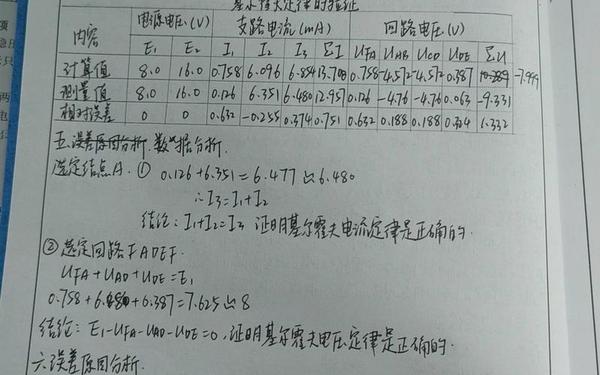 基尔霍夫定律的验证
内容 电源电压(V) 支路电流(mA) 回路电压(V)
E₁ E₂ I₁ I₂ I₃ ΣI UFA UAB UCD UDE ΣU
计算值 8.0 16.0 0.758 6.096 6.854 13.708 0.758 -4.572 -4.572 0.387 -7.999
测量值 8.0 16.0 0.126 6.351 6.480 12.957 0.126 -4.76 -4.76 0.063 -9.331
相对误差 0 0 0.632 -0.255 0.374 0.751 0.632 0.188 0.188 0.324 1.332
五.误差原因分析.数据分析.
选定结点A. ① 0.126+6.351=6.477≌6.480
∴I₃=I₁+I₂
结论:I₁+I₂=I₃ 证明基尔霍夫电流定律是正确的.
② 选定回路FADEF.
UFA+UAD+UDE=E₁
0.758+6.480+0.387=7.625≌8
结论:E₁-UFA-UAD-UDE=0,证明基尔霍夫电压定律是正确的.
六.误差原因分析.